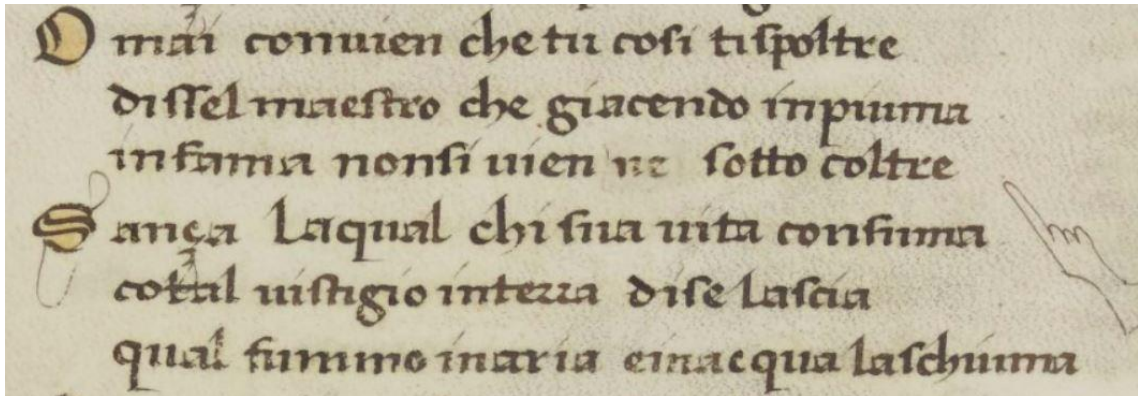 Omai conuien che tu cosi tispoltre
dissel maestro che giacendo inpiuma
infama nonsi uien ne sotto coltre
Sança Laqual chi sua uita consuma
cottal uistigio interra dise Lascia
qual fummo inaria einacqua laschiuma